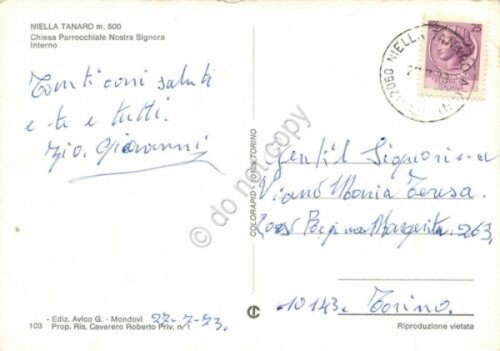 NIELLA TANARO m. 500
Chiesa Parrocchiale Nostra Signora
Interno
Tanti cari saluti
a te e tutti.
zio. Giovanni
25
12060 NIELLA TANARO
COLORAPID TORINO
do not copy
Gentil Signorina
Viano Maria Teresa.
Corso Regina Margarita. 263,
10143. Torino.
- Ediz. Avico G. - Mondovì
22-7-73.
103 Prop. Ris. Cavarero Roberto Priv. nr 1
Riproduzione vietata